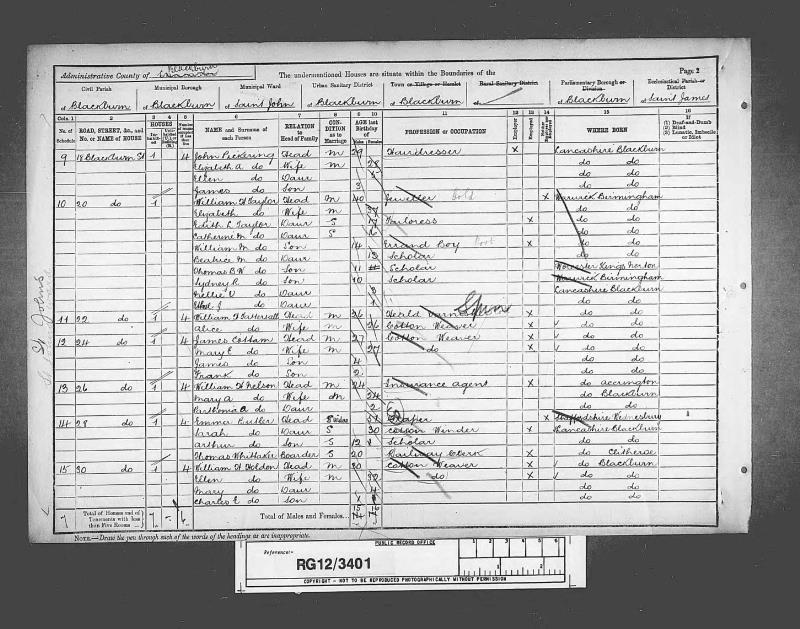 Administrative County of Blackburn
The undermentioned Houses are situate within the Boundaries of the
Page 2
Civil Parish
Municipal Borough
Municipal Ward
Urban Sanitary District
Town or Village or Hamlet
Rural Sanitary District
Parliamentary Borough or Division
Ecclesiastical Parish or District
of Blackburn
of Blackburn
of Saint John
of Blackburn
of Blackburn
of
of Blackburn
of Saint James
Cols. 1 2 3 4 5 6 7 8 9 10 11 12 13 14 15 16
No. of Schedule
ROAD, STREET, &c., and No. or NAME of HOUSE
HOUSES
NAME and Surname of each Person
RELATION to Head of Family
CONDITION as to Marriage
AGE last Birthday of
Males Females
PROFESSION or OCCUPATION
Employer
Employed
WHERE BORN
If
(1) Deaf-and-Dumb
(2) Blind
(3) Lunatic, Imbecile or Idiot
9 18 Blackburn St 1 4 John Pickering Head M 29 Hairdresser X Lancashire Blackburn
Elizabeth A. do Wife M 28 do do
Ellen do Daur do do
James do Son 3 do do
10 20 do 1 William H Taylor Head M 40 Jeweller Gold X Warwick Birmingham
Elizabeth do Wife M do do
Edith L Taylor Daur S 17 Tailoress X do do
Catherine M do Daur S do do
William M do Son 14 Errand Boy X do do
Beatrice M do Daur 13 Scholar do do
Thomas B W do Son 11 Scholar Worcester Kings Norton
Sydney R do Son 10 Scholar Warwick Birmingham
Nellie V do Daur 3 Lancashire Blackburn
do Daur 1 do do
11 22 do 1 4 William H Tattersall Head M 26 X do do
Alice do Wife M 26 Cotton Weaver X do do
12 24 do 1 4 James Cottam Head M 27 Cotton Weaver X do do
Mary E do Wife M 27 do X do do
James do Son 4 do do
Frank do Son 2 do do
13 26 do 1 4 William H Nelson Head M 24 Insurance agent X do accrington
Mary A do Wife M 24 do Blackburn
Parthenia A do Daur 2 do do
14 28 do 1 4 Emma Butler Head Widow Draper X Staffordshire Wednesbury
Sarah do Daur S 30 Cotton Winder X Lancashire Blackburn
Arthur do Son S 12 Scholar do do
Thomas Whittaker Boarder S 20 Railway Clerk X do Clitheroe
15 30 do 1 4 William H Holdon Head M 30 Cotton Weaver X do Blackburn
Ellen do Wife M 32 do X do do
Mary do Daur 4 do do
Charles E do Son do do
7 Total of Houses and of Tenements with less than Five Rooms 7 - 6 Total of Males and Females...
NOTE.—Draw the pen through such of the words of the headings as are inappropriate.
St Johns
PUBLIC RECORD OFFICE
Reference:-
RG12/3401
COPYRIGHT - NOT TO BE REPRODUCED PHOTOGRAPHICALLY WITHOUT PERMISSION